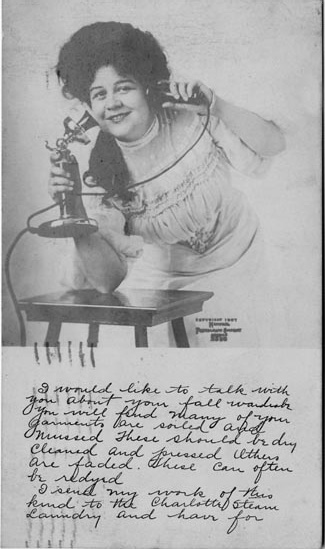 COPYRIGHT 1907
NATIONAL
I would like to talk with
you about your fall wardrobe
You will find many of your
garments are soiled and
mussed These should be dry
cleaned and pressed Others
are faded. These can often
be redyed
I send my work of this
kind to the Charlotte Steam
Laundry and have for